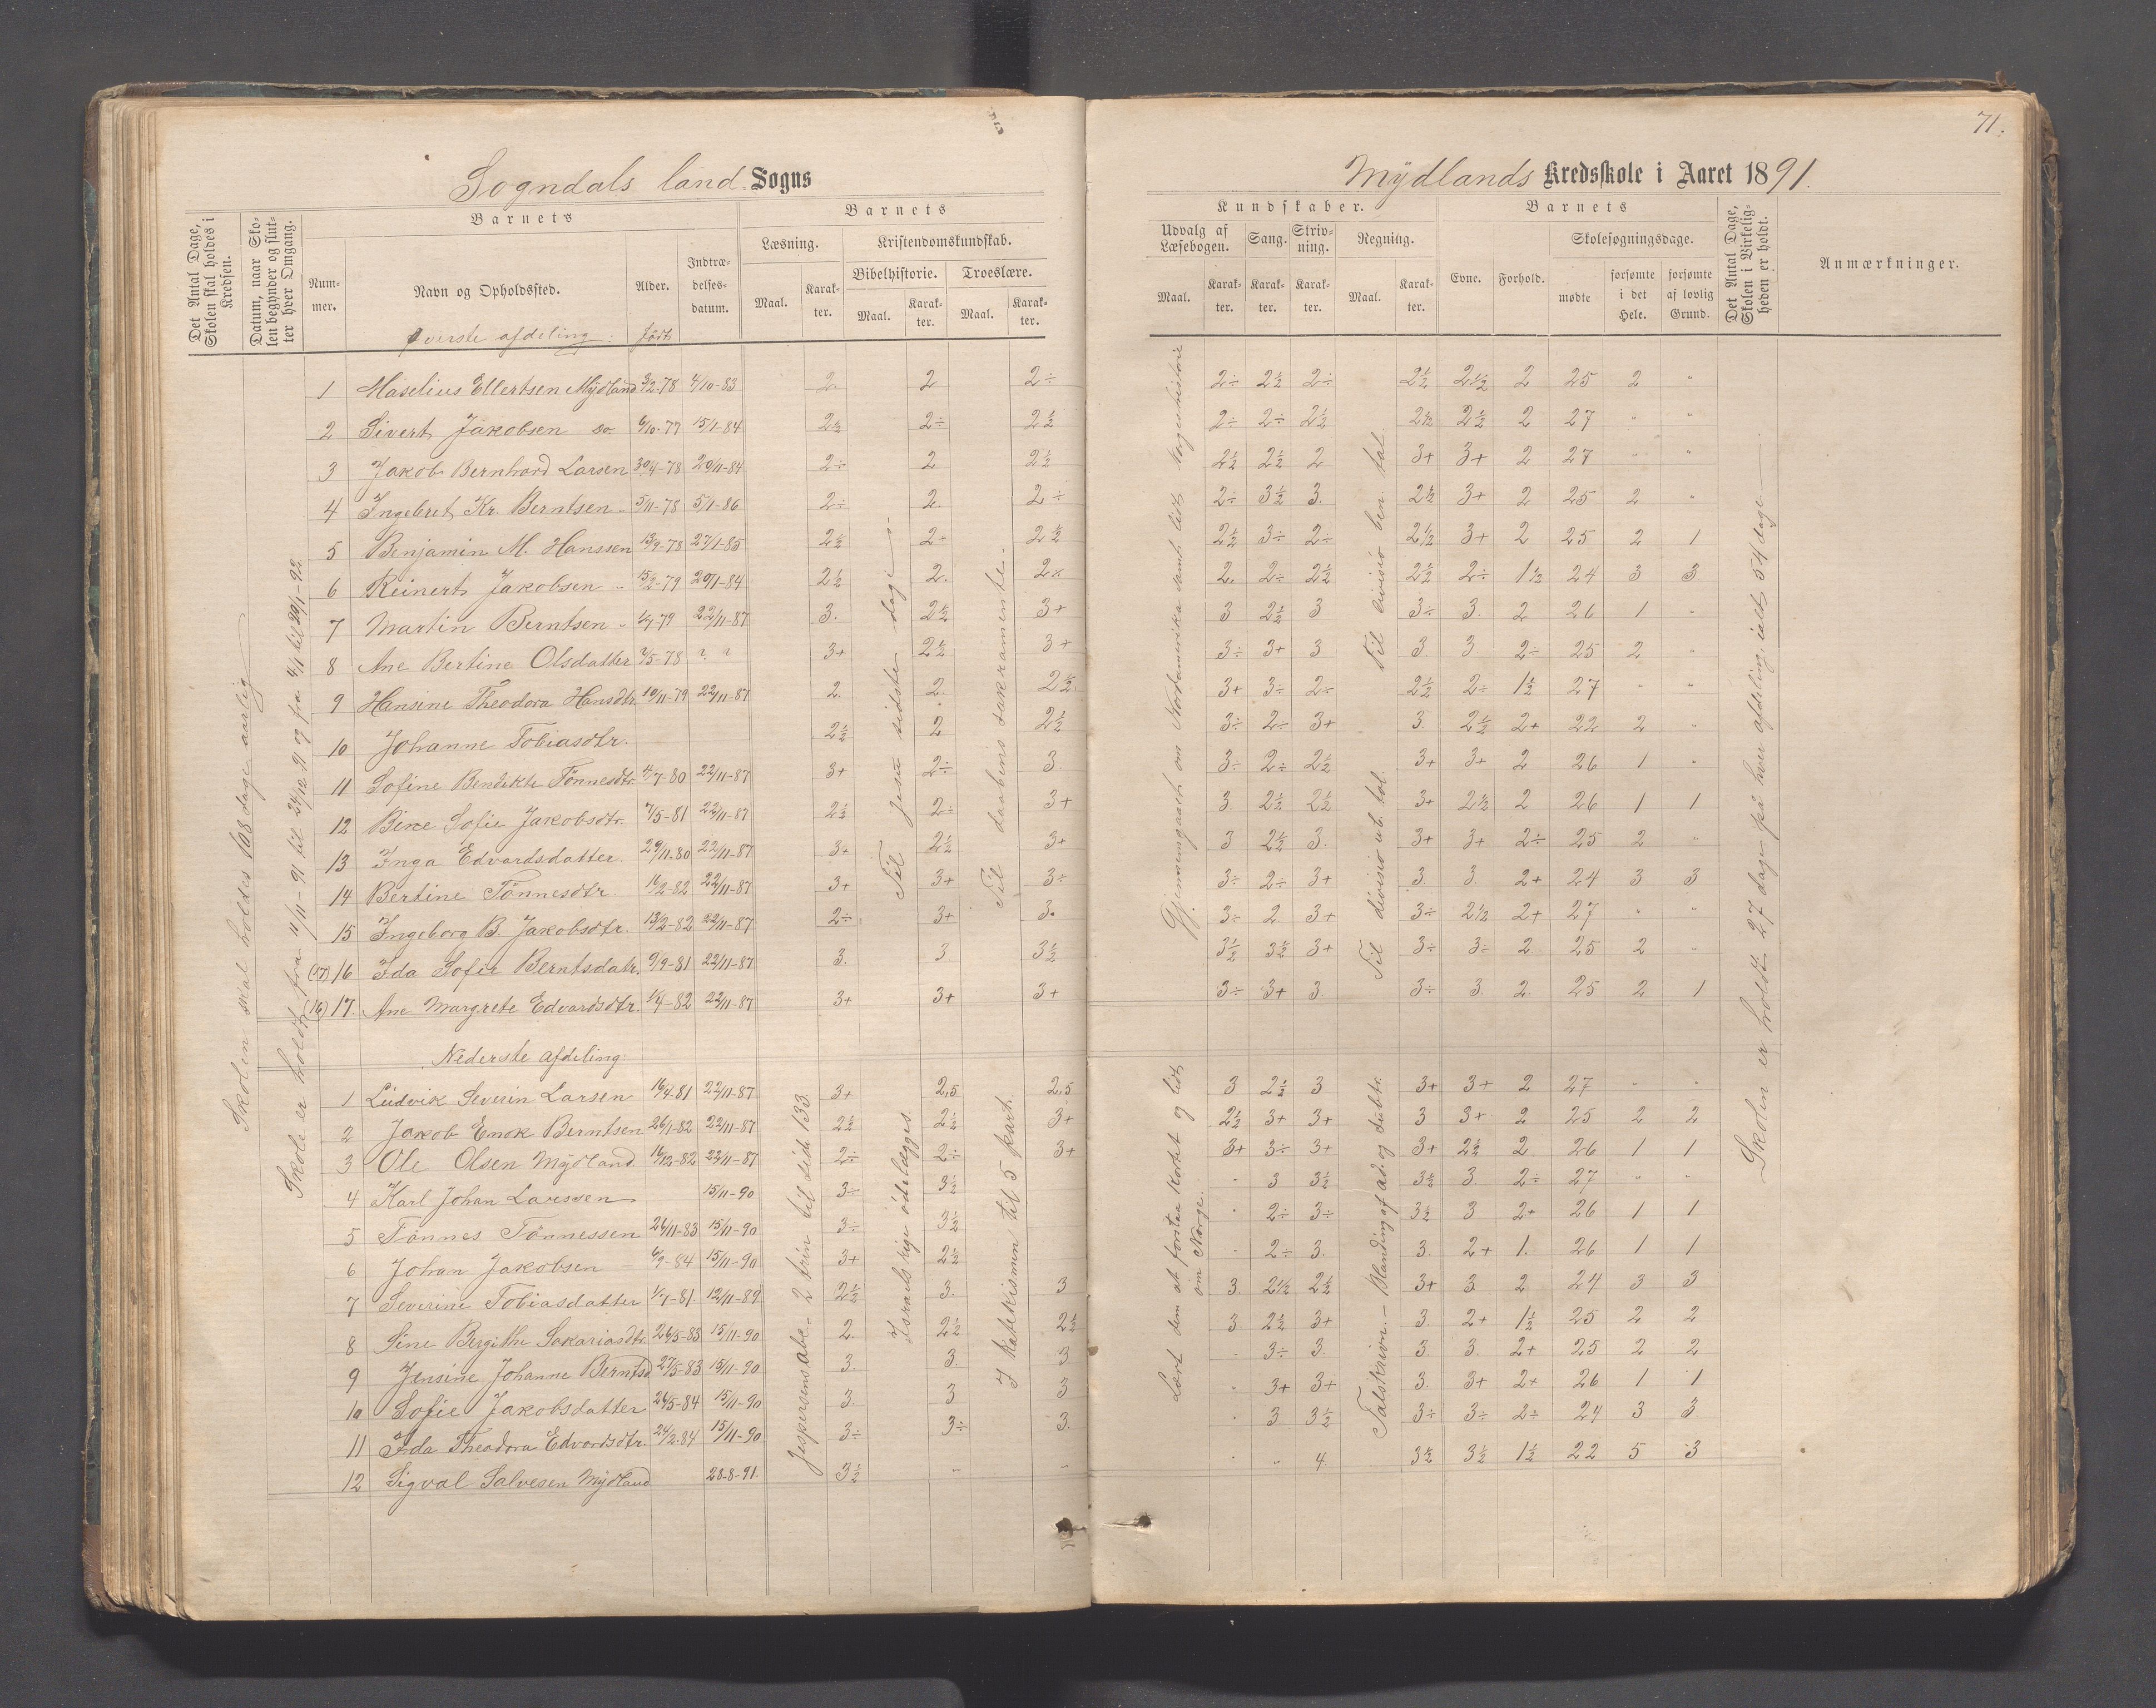 71.
Sogndals land Sogns
Mydlands Kredsskole i Aaret 1891.
Det Antal Dage, Skolen skal holdes i Kredsen.
Datum, naar Skolen begynder og slutter hver Omgang.
Barnets
Nummer.
Navn og Opholdssted.
Alder.
Indtrædelsesdatum.
Barnets
Læsning.
Maal.
Karakter.
Kristendomskundskab.
Bibelhistorie.
Maal.
Karakter.
Troeslære.
Maal.
Karakter.
Kundskaber.
Udvalg af Læsebogen.
Maal.
Karakter.
Sang.
Karakter.
Skrivning.
Karakter.
Regning.
Maal.
Karakter.
Barnets
Evne.
Forhold.
Skolesøgningsdage.
mødte
forsømte i det Hele.
forsømte af lovlig Grund.
Det Antal Dage, Skolen i Virkeligheden er holdt.
Anmærkninger.
Øverste afdeling: født
1 Maselius Ellertsen Mydland 3/2-78 4/10-83 2. 2 2÷ 2÷ 2½ 2÷ 2½ 2½ 2 25 2 "
2 Sivert Jakobsen do. 6/10-77 15/1-84 2½ 2÷ 2½ 2÷ 2÷ 2½ 2½ 2½ 2 27 " "
3 Jakob Bernhard Larsen 30/4-78 20/11-84 2÷ 2 2½ 2½ 2½ 2 3+ 3+ 2 27 " "
4 Ingebret Kr. Berntsen " 5/11-78 5/1-86 2÷ 2. 2÷ 2÷ 3½ 3. 2½ 3+ 2 25 2 "
5 Benjamin M. Hanssen 13/9-78 27/1-85 2½ 2÷ 2½ 2½ 3÷ 2÷ 2½ 3+ 2 25 2 1
6 Reinert Jakobsen " 15/2-79 20/1-84 2½ 2. 2. 2÷ 2½ 2½ 2÷ 1½ 24 3 3
7 Martin Berntsen " 22/11-87 3. 2½ 3+ 3 2½ 3 3÷ 3. 2 26 1 "
8 Ane Bertine Olsdatter 7/5-78 ? ? 3+ 2½ 3+ 3÷ 3+ 3 3. 3 2÷ 25 2 "
9 Hansine Theodora Hansdtr. 10/11-79 22/11-87 2. 2. 2½. 3+ 3÷ 2÷ 2½ 2÷ 1½ 27 " "
10 Johanne Tobiasdtr. 2½ 2 2½ 3÷ 2÷ 3+ 3. 2½ 2+ 22 2 "
11 Sofine Bendikte Tönnesdtr. 4/7-80 22/11-87 3+ 2÷ 3. 3÷ 2÷ 2½ 3+ 3+ 2 26 1 "
12 Bine Sofie Jakobsdtr. 7/5-81 22/11-87 2½ 2÷ 3+ 3. 2½ 2½ 3+ 2½ 2 26 1 1
13 Inga Edvardsdatter 29/11-80 22/11-87 3+ 2½ 3+ 3 2½ 3. 3+ 3+ 2÷ 25 2 "
14 Bertine Tönnesdtr. 16/2-82 22/11-87 3+ 3+ 3÷ 3÷ 2÷ 3+ 3. 3. 2+ 24 3 3
15 Ingeborg B. Jakobsdtr. 13/2-82 22/11-87 2÷ 3+ 3. 3÷ 2. 3+ 3÷ 2½ 2+ 27 " "
(17) 16 Ida Sofie Berntsdatr. 9/9-81 22/11-87 3. 3 3½ 3½ 3½ 3+ 3÷ 3÷ 2. 25 2 "
(16) 17. Ane Margrete Edvardsdtr. 1/4-82 22/11-87 3+ 3+ 3+ 3÷ 3+ 3. 3÷ 3. 2. 25 2 1
Nederste afdeling:
1 Ludvik Severin Larsen 16/4-81 22/11-87 3+ 2,5 2,5 3 2½ 3 3+ 3+ 2 27 " "
2 Jakob Enok Berntsen 26/1-82 22/11-87 2½ 2½ 3+ 2½ 3+ 3+ 3 3+ 2 25 2 2
3 Ole Olsen Mydland 16/12-82 22/11-87 2÷ 2÷ 3+ 3+ 3÷ 3+ 3+ 2½ 2 26 1 1
4 Karl Johan Larssen 15/11-90 3÷ 3½ " 3 3½ 3½ 3. 2÷ 27 " "
5 Tönnes Tönnessen 26/11-83 15/11-90 3÷ 3½ " 2÷ 3÷ 3½ 3 2+ 26 1 1
6 Johan Jakobsen 6/9-84 15/11-90 3+ 2½ " 2÷ 3. 3. 2+ 1. 26 1 1
7 Severine Tobiasdatter 1/7-81. 12/11-89 2½ 3. 3 3. 2½ 2½ 3+ 3. 2 24 3 3
8 Sine Bergithe Sakariasdtr. 26/5-83 15/11-90 2. 2½ 2½ 3. 2½ 3+ 3. 2+ 1½ 25 2 2
9 Jensine Johanne Berntsd 27/5-83 15/11-90 3. 3. 3 " 3÷ 3. 3. 3. 2+ 25 2 2
10 Sofie Jakobsdatter 26/5-84 15/11-90 3. 3 3 " 3+ 3+ 3. 3+ 2+ 26 1 1
11 Ida Theodora Edvardsdtr. 24/2-84 15/11-90 3÷ 3÷ 3. " 3 3½ 3÷ 3÷ 2÷ 24 3 3
12 Sigval Salvesen Mydland 28-8-91. 3½ - - " " 4 3½ 3½ 1½ 22 5 3
Skolen skal holdes 108 dage aarlig
Skole er holdt fra 11/11-91 til 24/12 91 og fra 4/1 til 20/1-92.
Til Jesu sidste dage.
Til daabens sakramente.
Gjennemgaaet om Nordamerika samt lidt Norgeshistorie
Til divisio ub. tal.
Til divisio ben. tal.
Skolen er holdt 27 dage på hver afdeling, ialt 54 dage
Jespersens abc. 2 trin til side 133.
Israels rige ödelægges.
I katekismen til 5 part.
Lært dem at forstaa kortet og lidt om Norge.
Talskrivn. - Blanding af ad. og subtr.